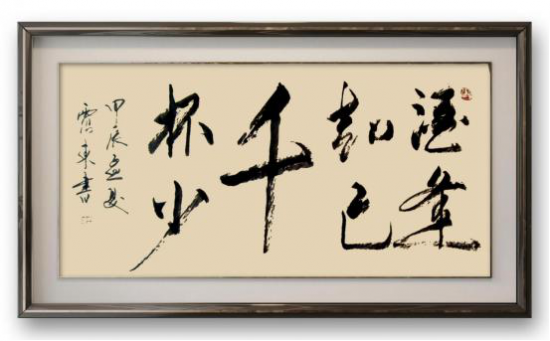 酒逢
知己
千
杯少
甲辰夏
東書